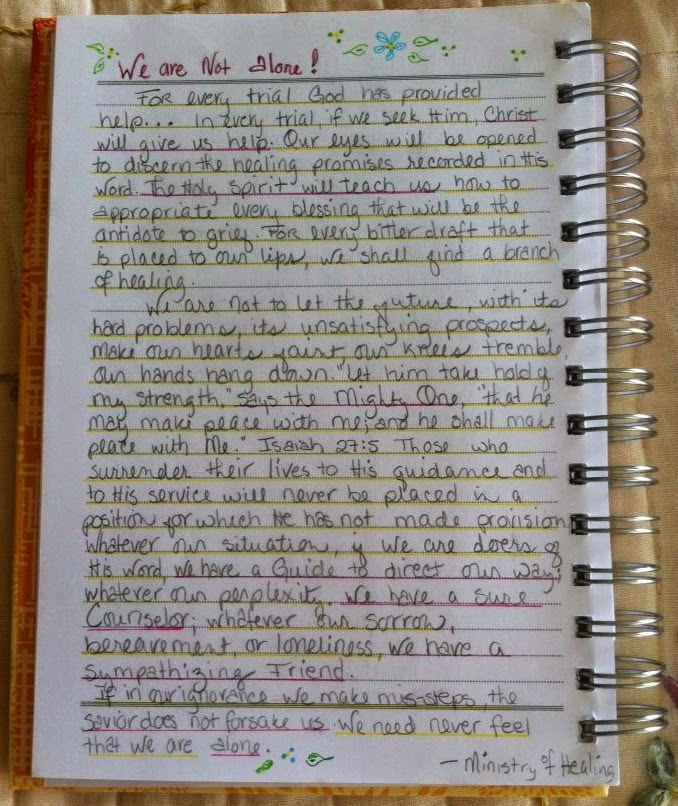 We are Not Alone!
For every trial God has provided
help... In every trial, if we seek Him, Christ
will give us help. Our eyes will be opened
to discern the healing promises recorded in His
Word. The Holy Spirit will teach us how to
appropriate every blessing that will be the
antidote to grief. For every bitter draft that
is placed to our lips, we shall find a branch
of healing.
We are not to let the future, with its
hard problems, its unsatisfying prospects,
make our hearts faint, our knees tremble,
our hands hang down. "Let him take hold of
my strength," says the Mighty One, "that he
may make peace with me; and he shall make
peace with Me." Isaiah 27:5 Those who
surrender their lives to His guidance and
to His service will never be placed in a
position for which He has not made provision.
Whatever our situation, if we are doers of
His Word, we have a Guide to direct our way;
whatever our perplexity, we have a sure
Counselor; whatever our sorrow,
bereavement, or loneliness, we have a
sympathizing Friend.
If in our ignorance we make mis-steps, the
Savior does not forsake us. We need never feel
that we are alone.
— Ministry of Healing